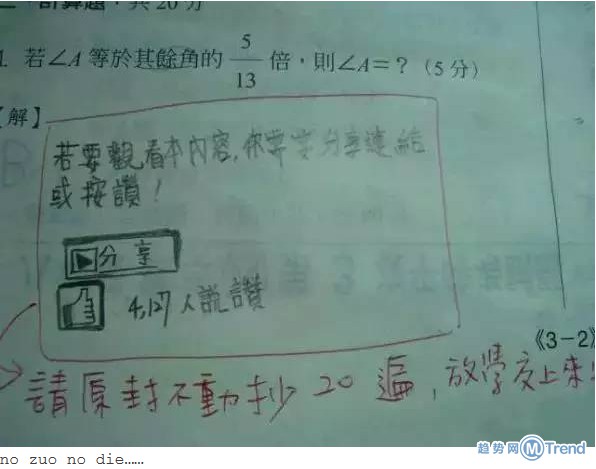 二、計算題：共20分
1. 若∠A等於其餘角的 5/13 倍，則∠A=？（5分）
【解】
若要觀看本內容，你要享分享連結
或按讚！
分享
4,127人說讚
《3-2》
請原封不動抄20遍，放學交上來
趋势网 Trend
no zuo no die……